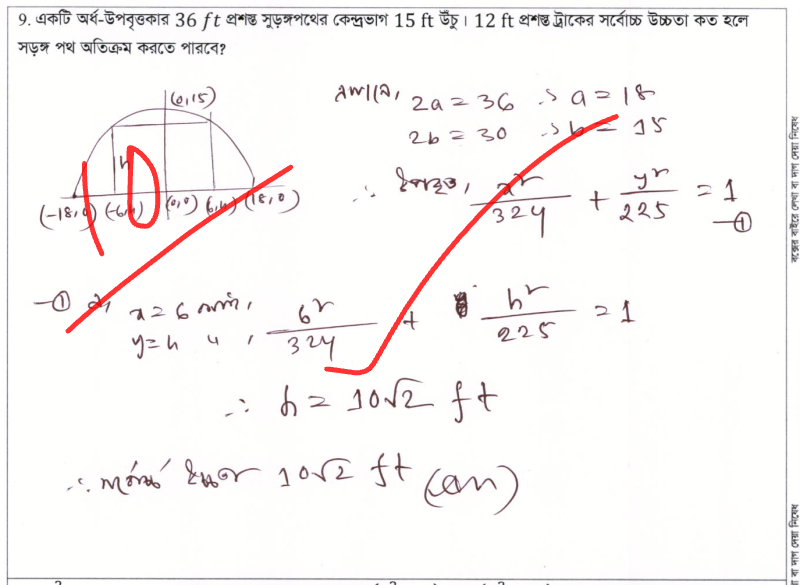 9. একটি অর্ধ-উপবৃত্তকার 36 ft প্রশস্ত সুড়ঙ্গপথের কেন্দ্রভাগ 15 ft উঁচু। 12 ft প্রশস্ত ট্রাকের সর্বোচ্চ উচ্চতা কত হলে
সড়ঙ্গ পথ অতিক্রম করতে পারবে?
(0,15)
h
(-18,0) (-6,h) (0,0) (6,h) (18,0)
10
2a = 36 ∴ a = 18
2b = 30 ∴ b = 15
∴ উপবৃত্ত, x²/324 + y²/225 = 1 —①
—① এ, x = 6
y = h
6²/324 + h²/225 = 1
∴ h = 10√2 ft
∴ সর্বোচ্চ উচ্চতা 10√2 ft (Ans)
বক্সের বাইরে লেখা বা দাগ দেয়া নিষেধ
বা দাগ দেয়া নিষেধ